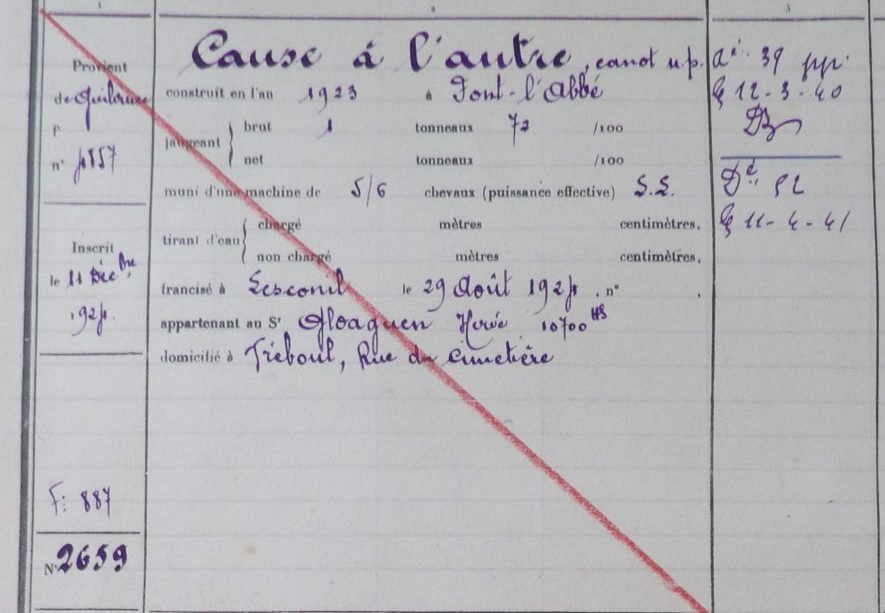 1
2
3
Provient
de Guilvinec
F
n° 1857
Inscrit
le 11 Déc bre
1924.
F: 887
N° 2659
Cause à l'autre, canot n.p.
construit en l'an 1923 à Pont-l'Abbé
jaugeant brut 1 tonneaux 72 /100
net tonneaux /100
muni d'une machine de 5/6 chevaux (puissance effective) S.S.
tirant d'eau chargé mètres centimètres.
non chargé mètres centimètres.
francisé à Lesconil le 29 Août 1924. n° .
appartenant au Sr Gloaguen Hervé 10700 HS
domicilié à Tréboul, Rue du Cimetière
39
12-3-40
Dé 52
11-4-41